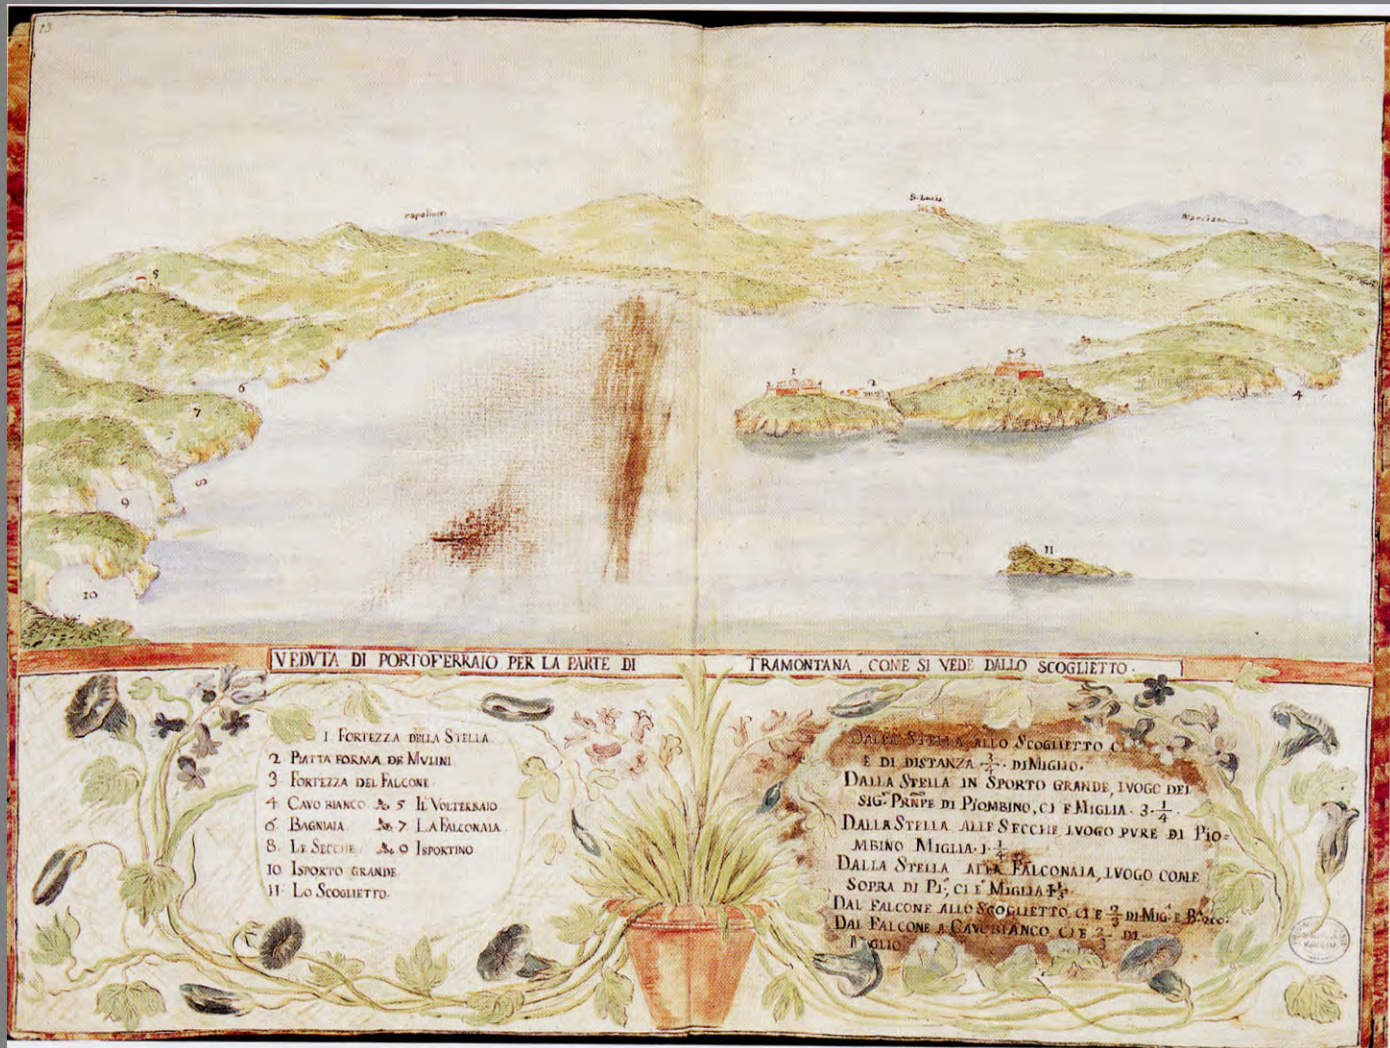 13
Capoliveri
S. Lucia
Marciana
5
6
7
8
9
10
1
2
3
4
11
VEDVTA DI PORTOFERRAIO PER LA PARTE DI TRAMONTANA, COME SI VEDE DALLO SCOGLIETTO.
1 FORTEZZA DELLA STELLA
2 PIATTA FORMA DE MVLINI
3 FORTEZZA DEL FALCONE
4 CAVO BIANCO. & 5 IL VOLTERRAIO
6 BAGNIAIA & 7 LA FALCONAIA
8 LE SECCHE & 9 ISPORTINO
10 ISPORTO GRANDE
11 LO SCOGLIETTO.
DALLA STELLA ALLO SCOGLIETTO C
E DI DISTANZA 3/4 DI MIGLIO.
DALLA STELLA IN SPORTO GRANDE, LVOGO DEL
SIG.R PRNPE DI PIOMBINO, CI E MIGLIA 3 1/4
DALLA STELLA ALLE SECCHE LVOGO PVRE DI PIO=
MBINO MIGLIA 1 1/4
DALLA STELLA ALLA FALCONAIA, LVOGO COME
SOPRA DI PI, CI E MIGLIA
DAL FALCONE ALLO SCOGLIETTO, CI E 2/3 DI MIG: E
DAL FALCONE A CAVO BIANCO CI E 2/3 DI
MIGLIO